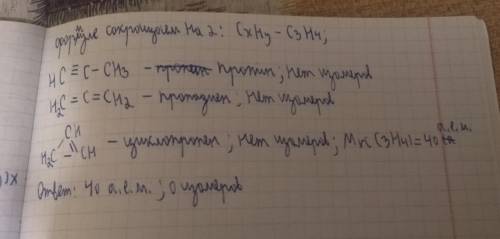 формуле сокращаем на 2: CxHy - C3H4;
HC≡C-CH3 - пропин; нет изомеров
H2C=C=CH2 - пропадиен, нет изомеров
CH
H2C - || CH - циклопропен; нет изомеров; Mr(C3H4)=40 а.е.м.
Ответ: 40 а.е.м.; 0 изомеров